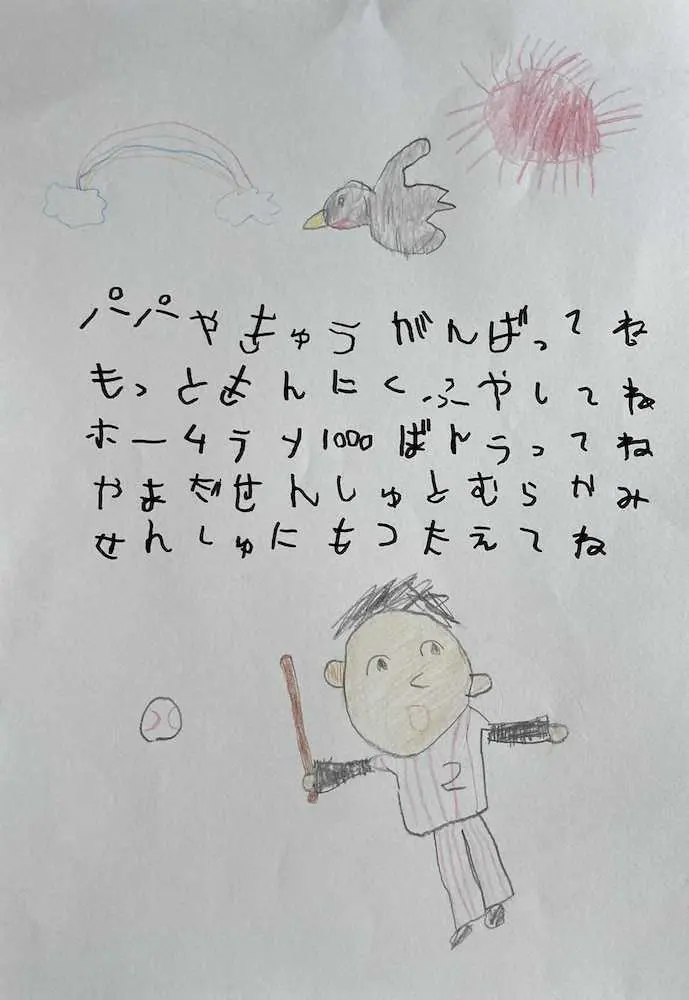 パパやきゅうがんばってね
もっときんにくふやしてね
ホームラン1000ぽんうってね
やまだせんしゅとむらかみ
せんしゅにもつたえてね
2